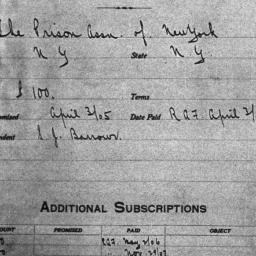 The Prison Assn. of New York
N Y State N Y
$ 100. Terms
omised April 3/05 Date Paid R Q 7. April 3/
ndent S. J. Barrows.
ADDITIONAL SUBSCRIPTIONS
OUNT PROMISED PAID OBJECT
RQ7. May 2/06
" Nov 29/07